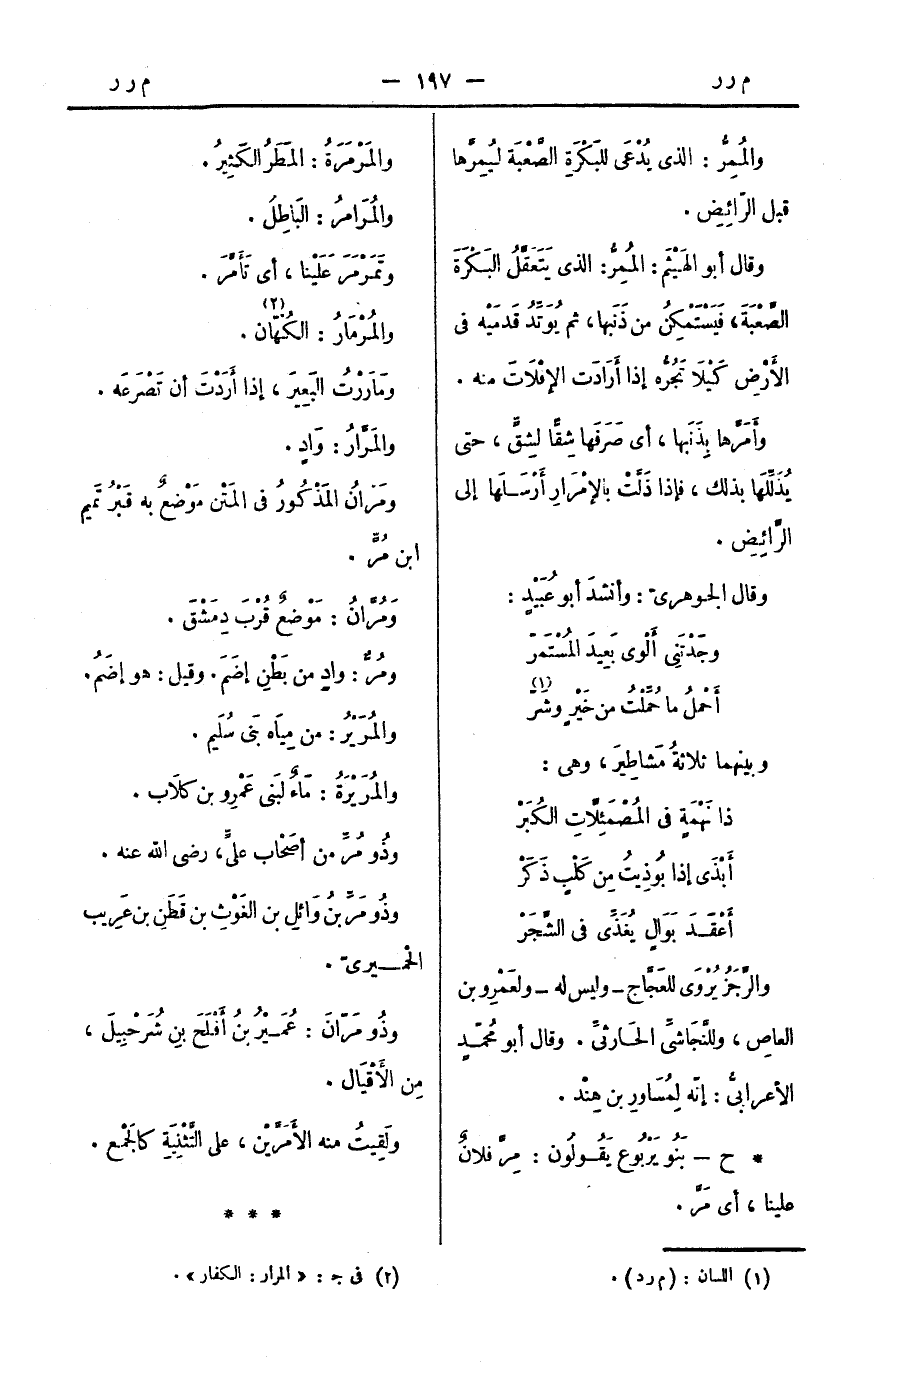 م ر ر — ١٩٧ — م ر ر
والمُمِرُّ : الذى يُدْعَى للبَكْرَةِ الصَّعْبَة لِيُمِرَّها
قبل الرّائِضِ .
وقال أبو الهَيْثَمِ : المُمِرُّ: الذى يَتَعَقَّلُ البَكْرَةَ
الصَّعْبَةَ، فَيَسْتَمْكِنُ من ذَنَبِها، ثم يُوَتِّدُ قَدميْه فى
الأَرْضِ كَيْلَا تَجُرَّه إذا أَرَادَت الإفْلَاتَ منه .
وأَمَرَّها بِذَنَبِها ، أى صَرَفَها شِقًّا لِشِقٍّ ، حتى
يُذَلِّلَها بذلك ، فإذا ذَلَّتْ بالإمْرَارِ أَرْسَلَها إلى
الرَّائِضِ .
وقال الجوهرىّ : وأنشدَ أبو عُبَيْدٍ :
وجَدْتَنِى أَلْوى بَعِيدَ المُسْتَمَرّ
أَحْمِلُ ما حُمِّلْتُ من خَيْرٍ وشَرّ (١)
وبينهما ثلاثةُ مَشَاطِيرَ ، وهى :
ذا نَهْمَةٍ فى المُصْمَئِلَّاتِ الكُبَرْ
أَبْذَى إذا بُوذِيتُ مِن كَلْبٍ ذَكَرْ
أَعْقَدَ بَوّالٍ يُغَذِّى فى الشَّجَرْ
والرَّجَزُ يُرْوَى للعَجَّاج ــ وليس له ــ ولعَمْرِو بن
العاص ، وللنَّجَاشىِّ الحَارِثىِّ . وقال أبو مُحَمَّدٍ
الأعرابىُّ : إنّه لِمُسَاورِ بن هِنْد .
* ح – بَنُو يَرْبُوع يَقُولُون : مِرَّ فلانٌ
علينا ، أى مَرَّ .
(١) اللسان : (م ر د) .
والمَرْمَرَةُ : المَطَرُ الكَثِيرُ .
والمُرَامِرُ : البَاطِلُ .
وتَمَرْمَرَ عَلَيْنا ، أى تَأَمَّرَ .
والمُرْمَارُ : الكُهّان (٢) .
ومَارَرْتُ البَعِيرَ ، إذا أَرَدْتَ أن تَصْرَعَه .
والمَرَّارُ : وَادٍ .
ومَرّانُ المَذْكُورُ فى المَتْن مَوْضعٌ به قَبْرُ تَميم
ابن مُرٍّ .
ومُرَّانُ : مَوْضعٌ قُرْبَ دِمَشْقَ .
ومُرٌّ : وادٍ من بَطْنِ إضَمَ . وقيل : هو إضَمُ .
والمُرَيْرُ : من مِيَاه بَنى سُلَيم .
والمُرَيْرَةُ : مَاءٌ لبَنى عَمْرِو بن كلَاب .
وذُو مُرٍّ من أَصْحَاب علىٍّ ، رضى الله عنه .
وذُو مَرِّ بنُ وَائِلِ بنِ الغَوْثِ بن قَطَنِ بن عَرِيب
الحْميرىّ .
وذُو مَرّانَ : عُمَيْرُ بنُ أَفْلَحَ بنِ شُرَحْبِيلَ ،
مِن الأَقْيَال .
ولَقِيتُ منه الأَمَرَّيْن ، على التَّثْنِيَة كالجَمْع .
* * *
(٢) فى ج : « المرار : الكفار » .